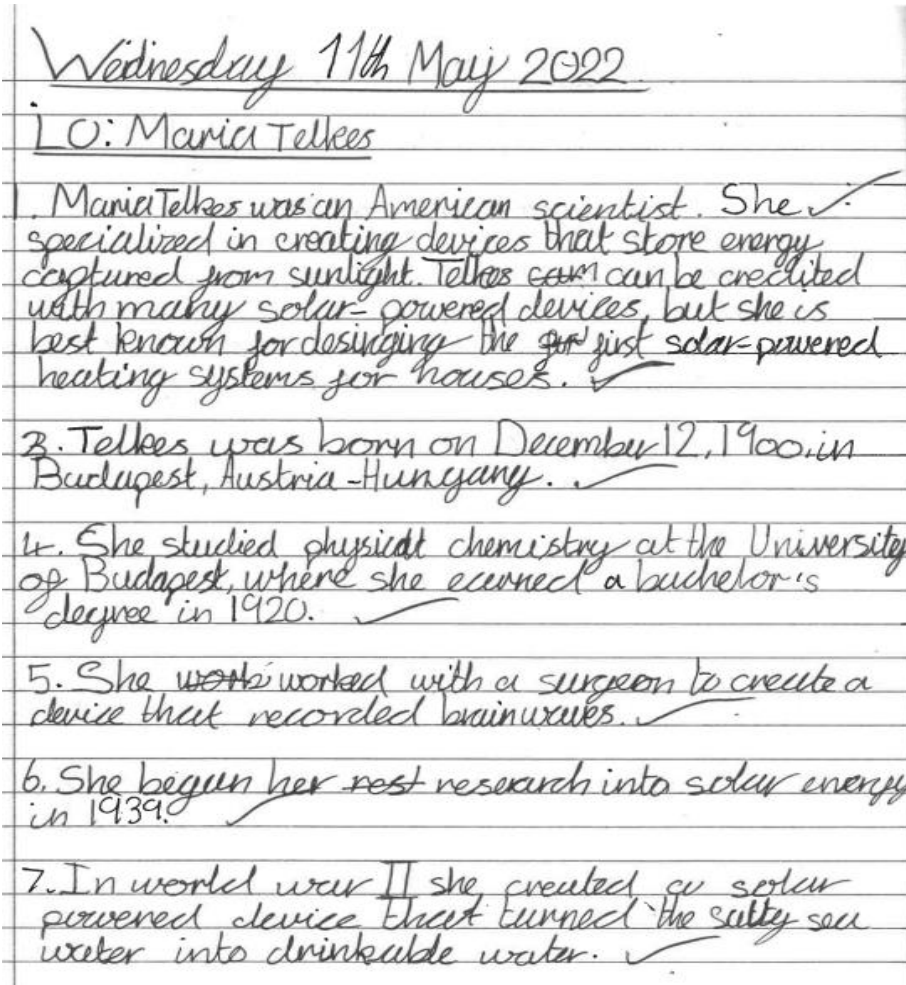 Wednesday 11th May 2022
LO: Maria Telkes
1. Maria Telkes was an American scientist. She
specialized in creating devices that store energy
captured from sunlight. Telkes can be credited
with many solar-powered devices, but she is
best known for desinging the first solar-powered
heating systems for houses.
3. Telkes was born on December 12, 1900, in
Budapest, Austria-Hungany.
4. She studied physical chemistry at the University
of Budapest, where she earned a bachelor's
degree in 1920.
5. She worked with a surgeon to create a
device that recorded brainwaves.
6. She began her rest research into solar energy
in 1939.
7. In world war II she created a solar
powered device that turned the salty sea
water into drinkable water.